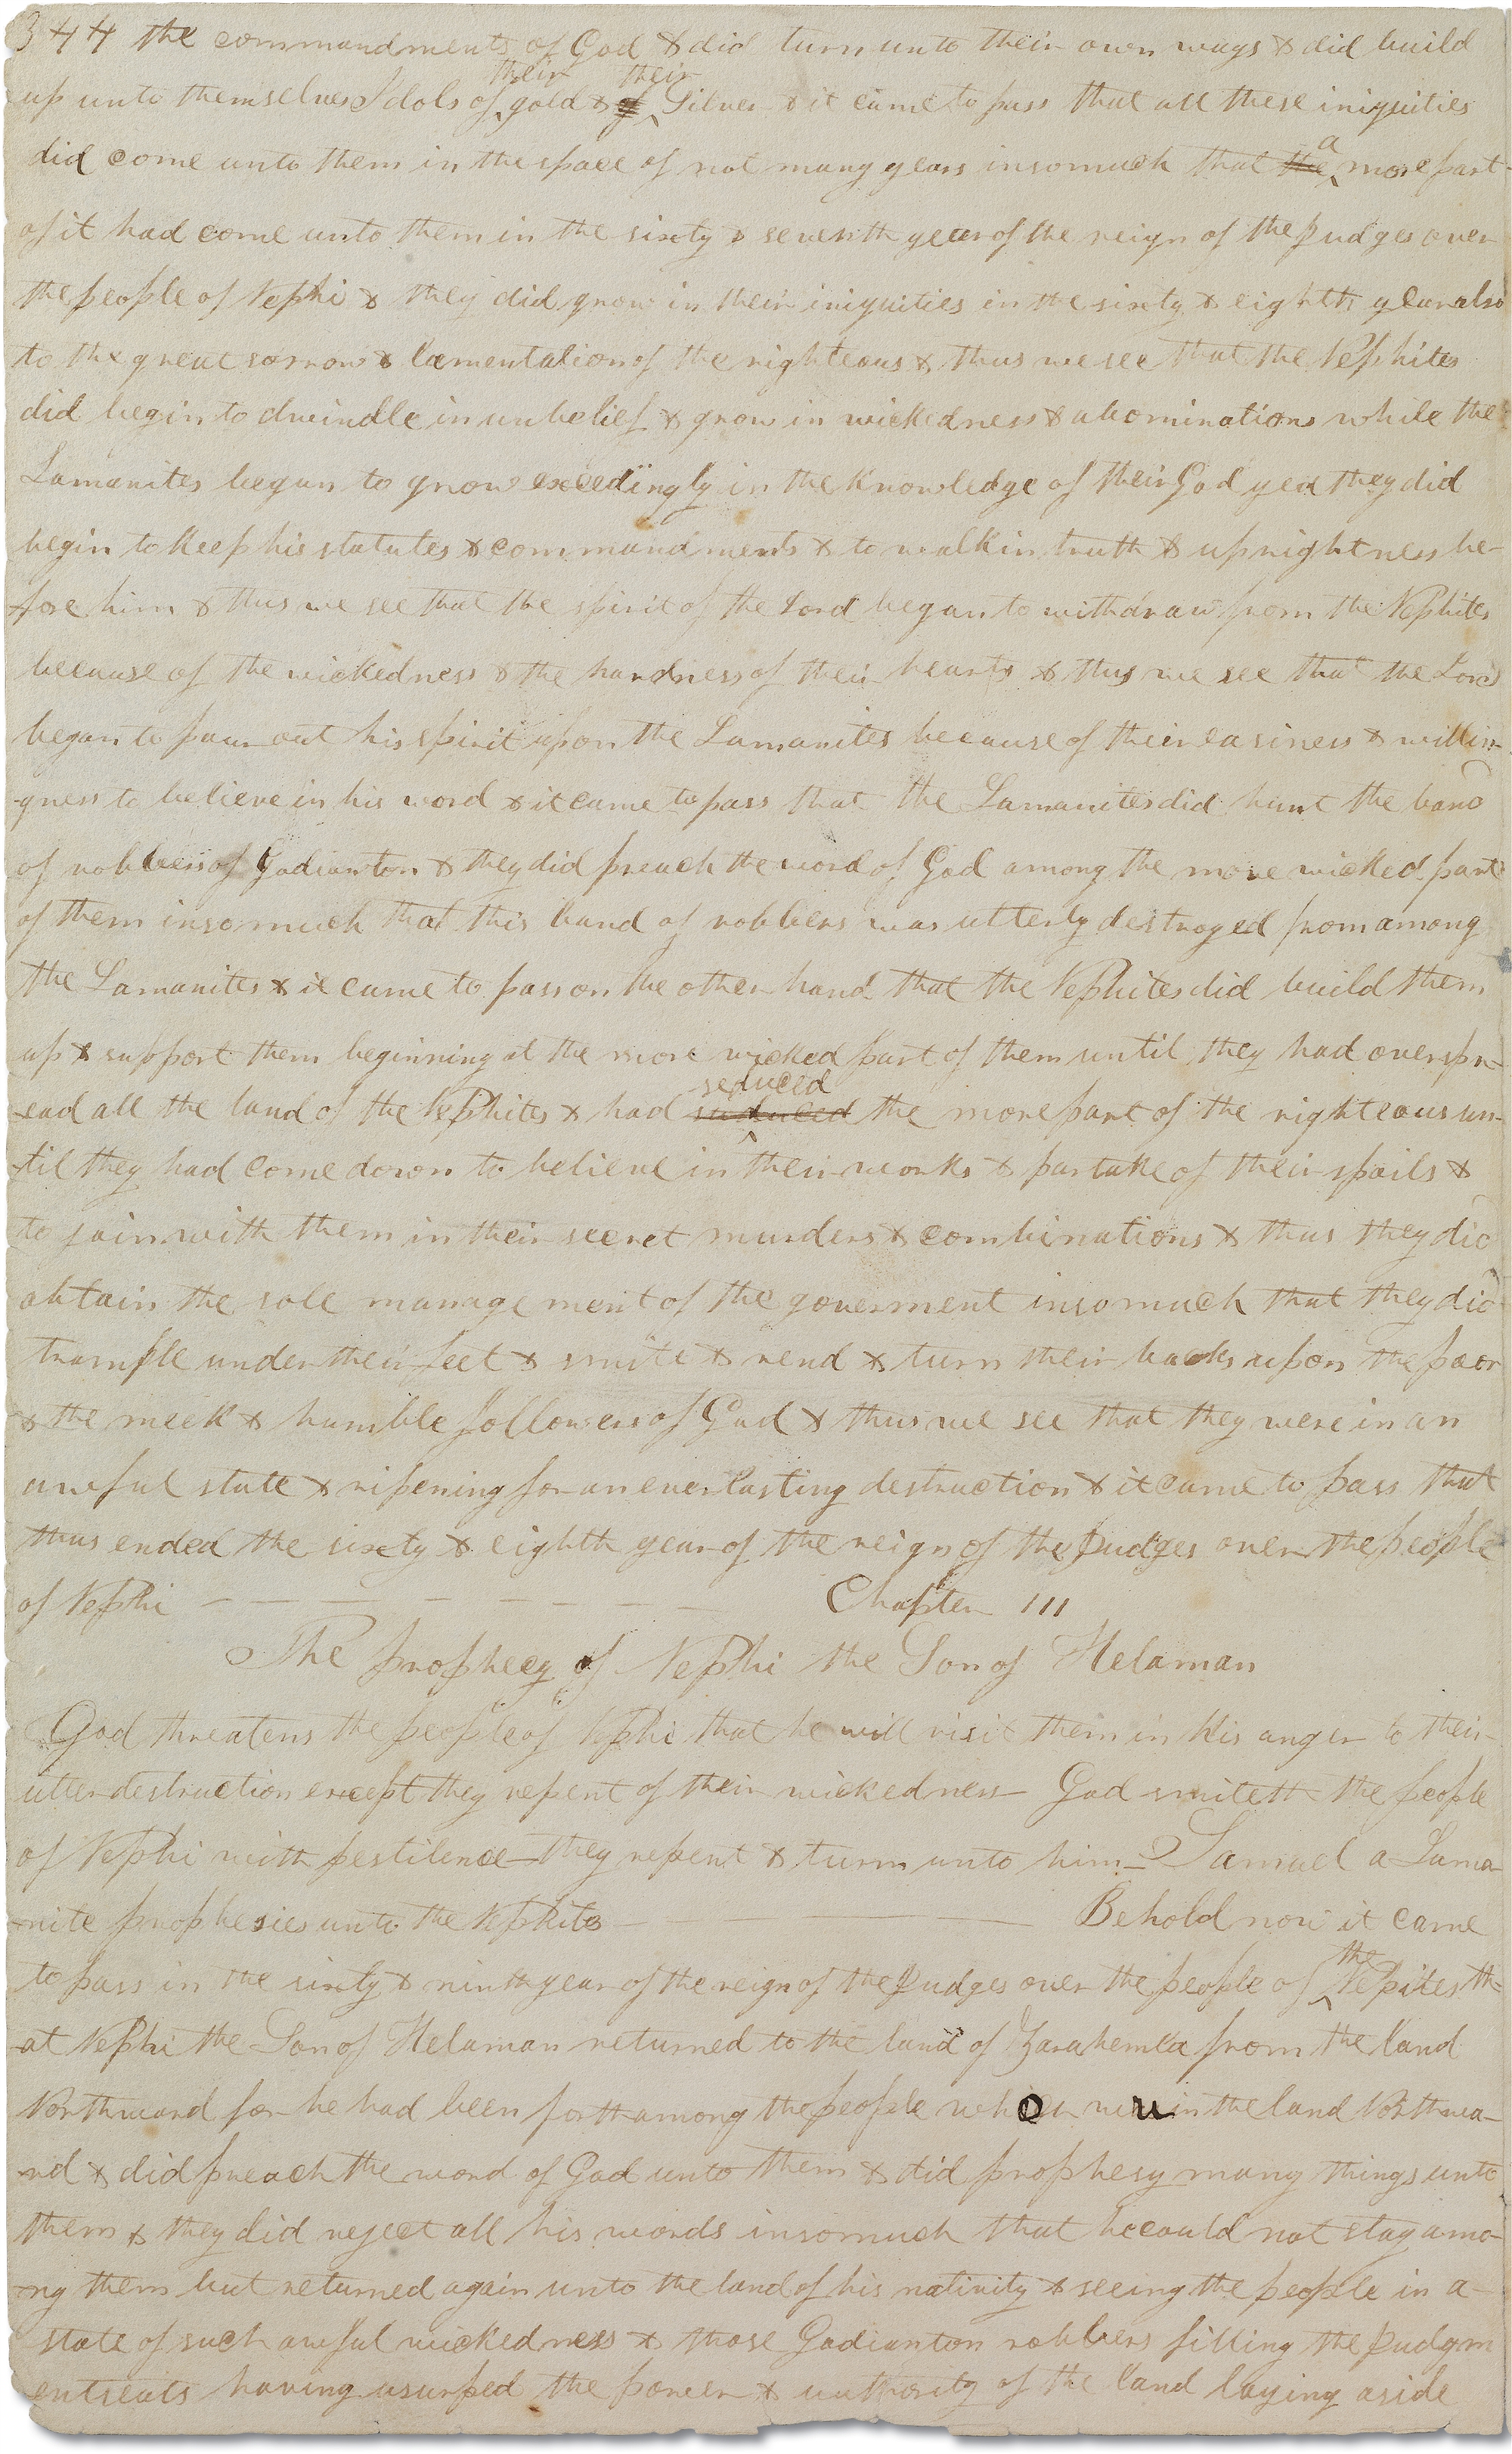 344 the commandments of God & did turn unto their own ways & did build
up unto themselves Idols of their gold & of their Silver & it came to pass that all these iniquities
did come unto them in the space of not many years insomuch that the a more part
of it had come unto them in the sixty & seventh year of the reign of the Judges over
the people of Nephi & they did grow in their iniquities in the sixty & eighth year also
to the great sorrow & lamentation of the righteous & thus we see that the Nephites
did begin to dwindle in unbelief & grow in wickedness & abominations while the
Lamanites began to grow excedingly in the knowledge of their God yea they did
begin to keep his statutes & commandments & to walk in truth & uprightness be-
-fore him & thus we see that the spirit of the Lord began to withdraw from the Nephites
because of the wickedness & the hardness of their hearts & thus we see that the Lord
began to pour out his spirit upon the Lamanites because of their easiness & willin-
-gness to believe in his word & it came to pass that the Lamanites did hunt the band
of robbers of Gadianton & they did preach the word of God among the more wicked part
of them insomuch that this band of robbers was utterly destroyed from among
the Lamanites & it came to pass on the other hand that the Nephites did build them
up & support them beginning at the more wicked part of them until they had overspr-
-ead all the land of the Nephites & had seduced the more part of the righteous un-
-til they had come down to believe in their works & partake of their spoils &
to join with them in their secret murders & combinations & thus they did
obtain the sole management of the goverment insomuch that they did
trample under their feet & smite & rend & turn their backs upon the poor
& the meek & humble followers of God & thus we see that they were in an
awful state & ripening for an everlasting destruction & it came to pass that
thus ended the sixty & eighth year of the reign of the Judges over the people
of Nephi — — — — — — — — Chapter III
The prophecy of Nephi the Son of Helaman
God threatens the people of Nephi that he will visit them in his anger to their
utter destruction except they repent of their wickedness God smiteth the people
of Nephi with pestilence they repent & turn unto him— Samuel a Lama-
-nite prophesies unto the Nephites — Behold now it came
to pass in the sixty & ninth year of the reign of the Judges over the people of the Nepites th-
-at Nephi the Son of Helaman returned to the land of Zarahemla from the land
Northward for he had been forth among the people who was in the land Northwa-
-rd & did preach the word of God unto them & did prophesy many things unto
them & they did reject all his words insomuch that he could not stay amo-
-ng them but returned again unto the land of his nativity & seeing the people in a
state of such awful wickedness & those Gadianton robbers filling the Judgm
entseats having usurped the power & authority of the land laying aside